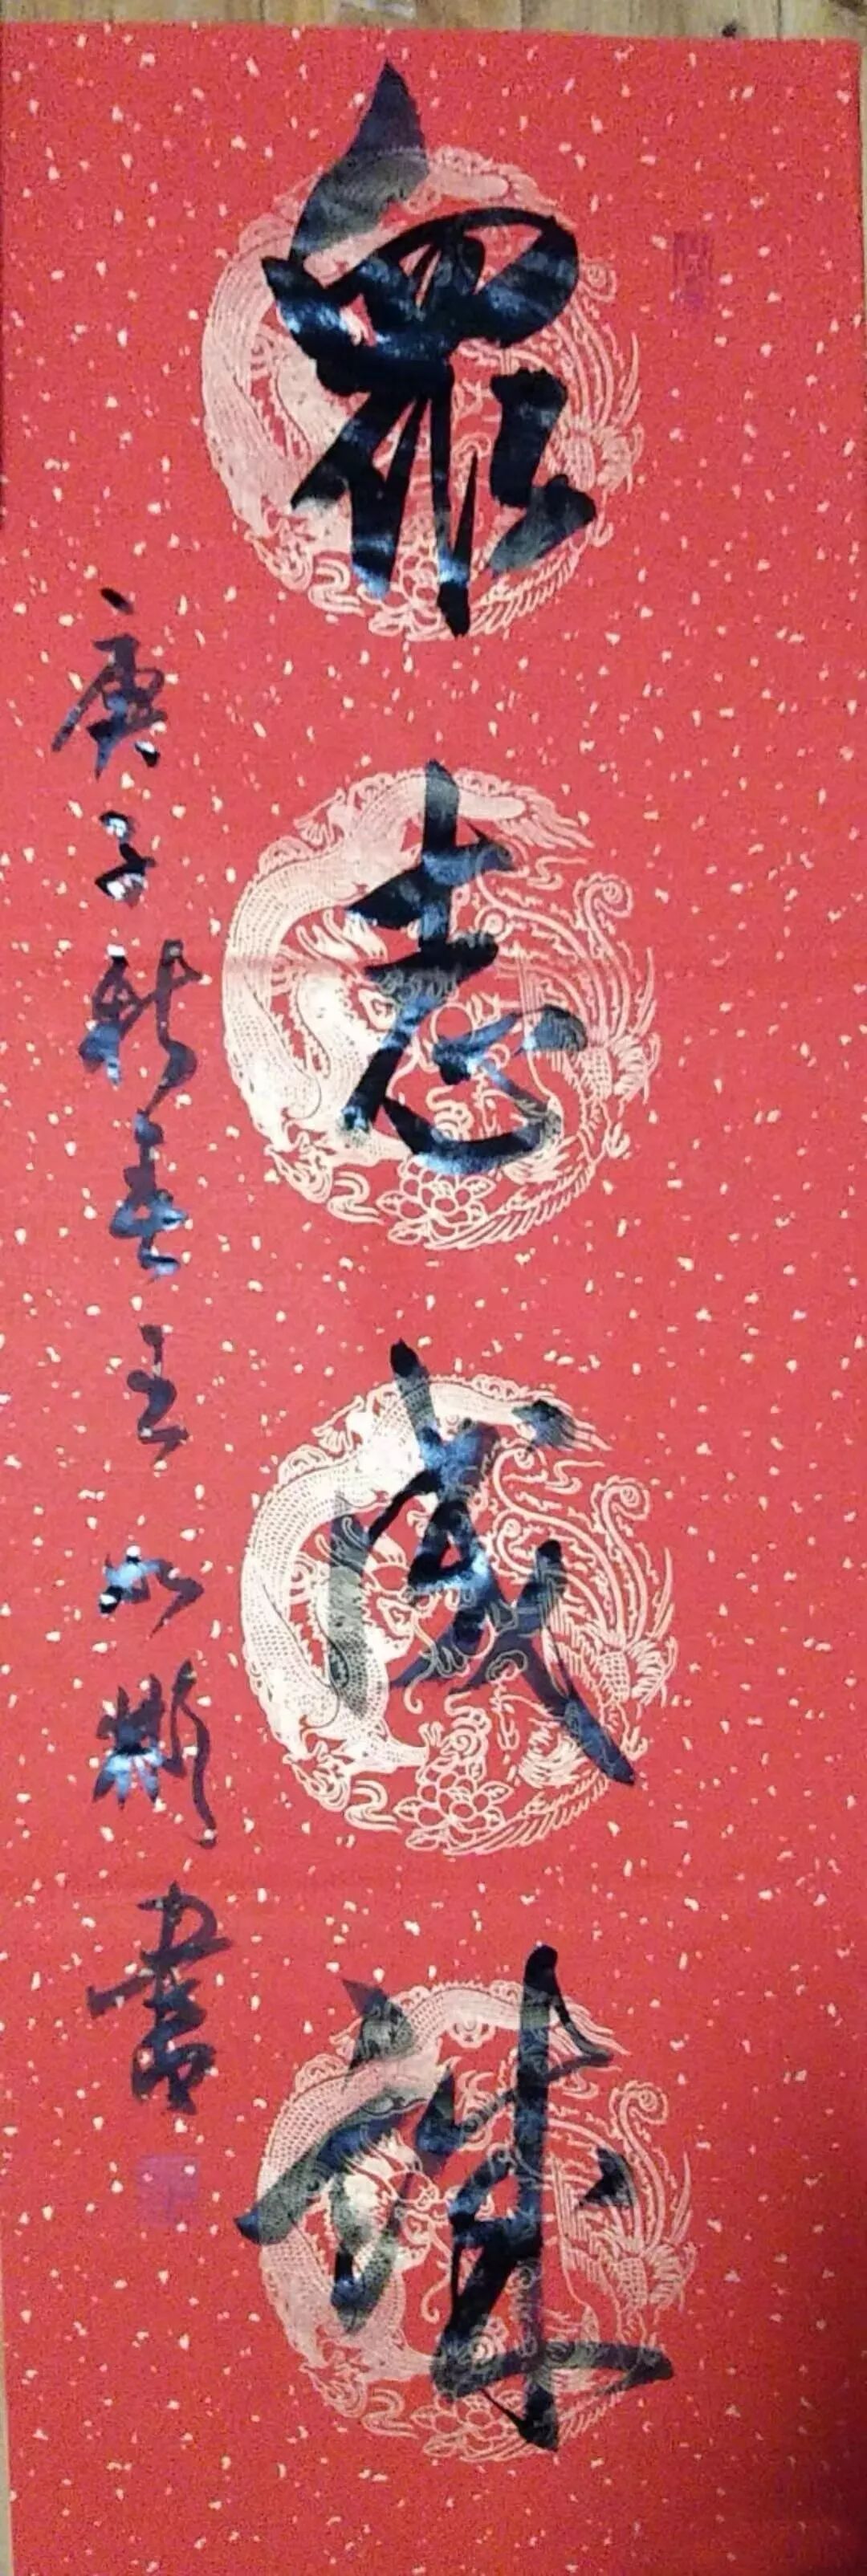 眾志成城
庚子新春王如嶽書